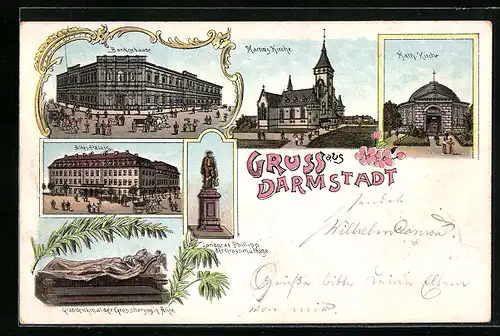 Bankgebäude
Martins Kirche
Kath. Kirche
Altes Palais
GRUSS aus
DARMSTADT
Landgraf Phillipp
der Grossmüthige.
Grabdenkmal der Grossherzogin Alice
sendet
Wilhelm
Grüße bitte Deine Eltern
von mir.